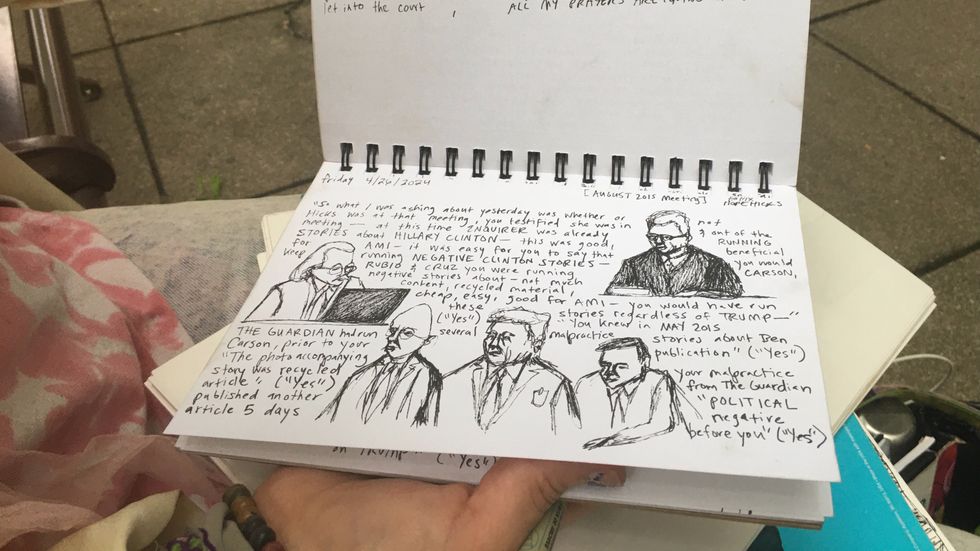 let into the court , ALL MY PRAYERS ARE
friday 4/26/2024 [AUGUST 2015 meeting]
"So what I was asking about yesterday was whether or not
Hicks was at that meeting, you testified she was in & out of the
meeting — at this time ENQUIRER was already RUNNING
STORIES about HILLARY CLINTON — this was good, beneficial
for AMI — it was easy for you to say that you would
keep running NEGATIVE CLINTON STORIES — CARSON,
RUBIO & CRUZ you were running
negative stories about — not much
content, recycled material,
cheap, easy, good for AMI — you would have run
these stories regardless of TRUMP—"
("Yes") "You knew in MAY 2015
THE GUARDIAN had run several malpractice stories about Ben
Carson, prior to your publication" ("Yes")
"The photo accompanying your malpractice
story was recycled from The Guardian
article" ("Yes") "POLITICAL
published another negative
article 5 days before you" ("Yes")
on TRUMP" ("Yes")